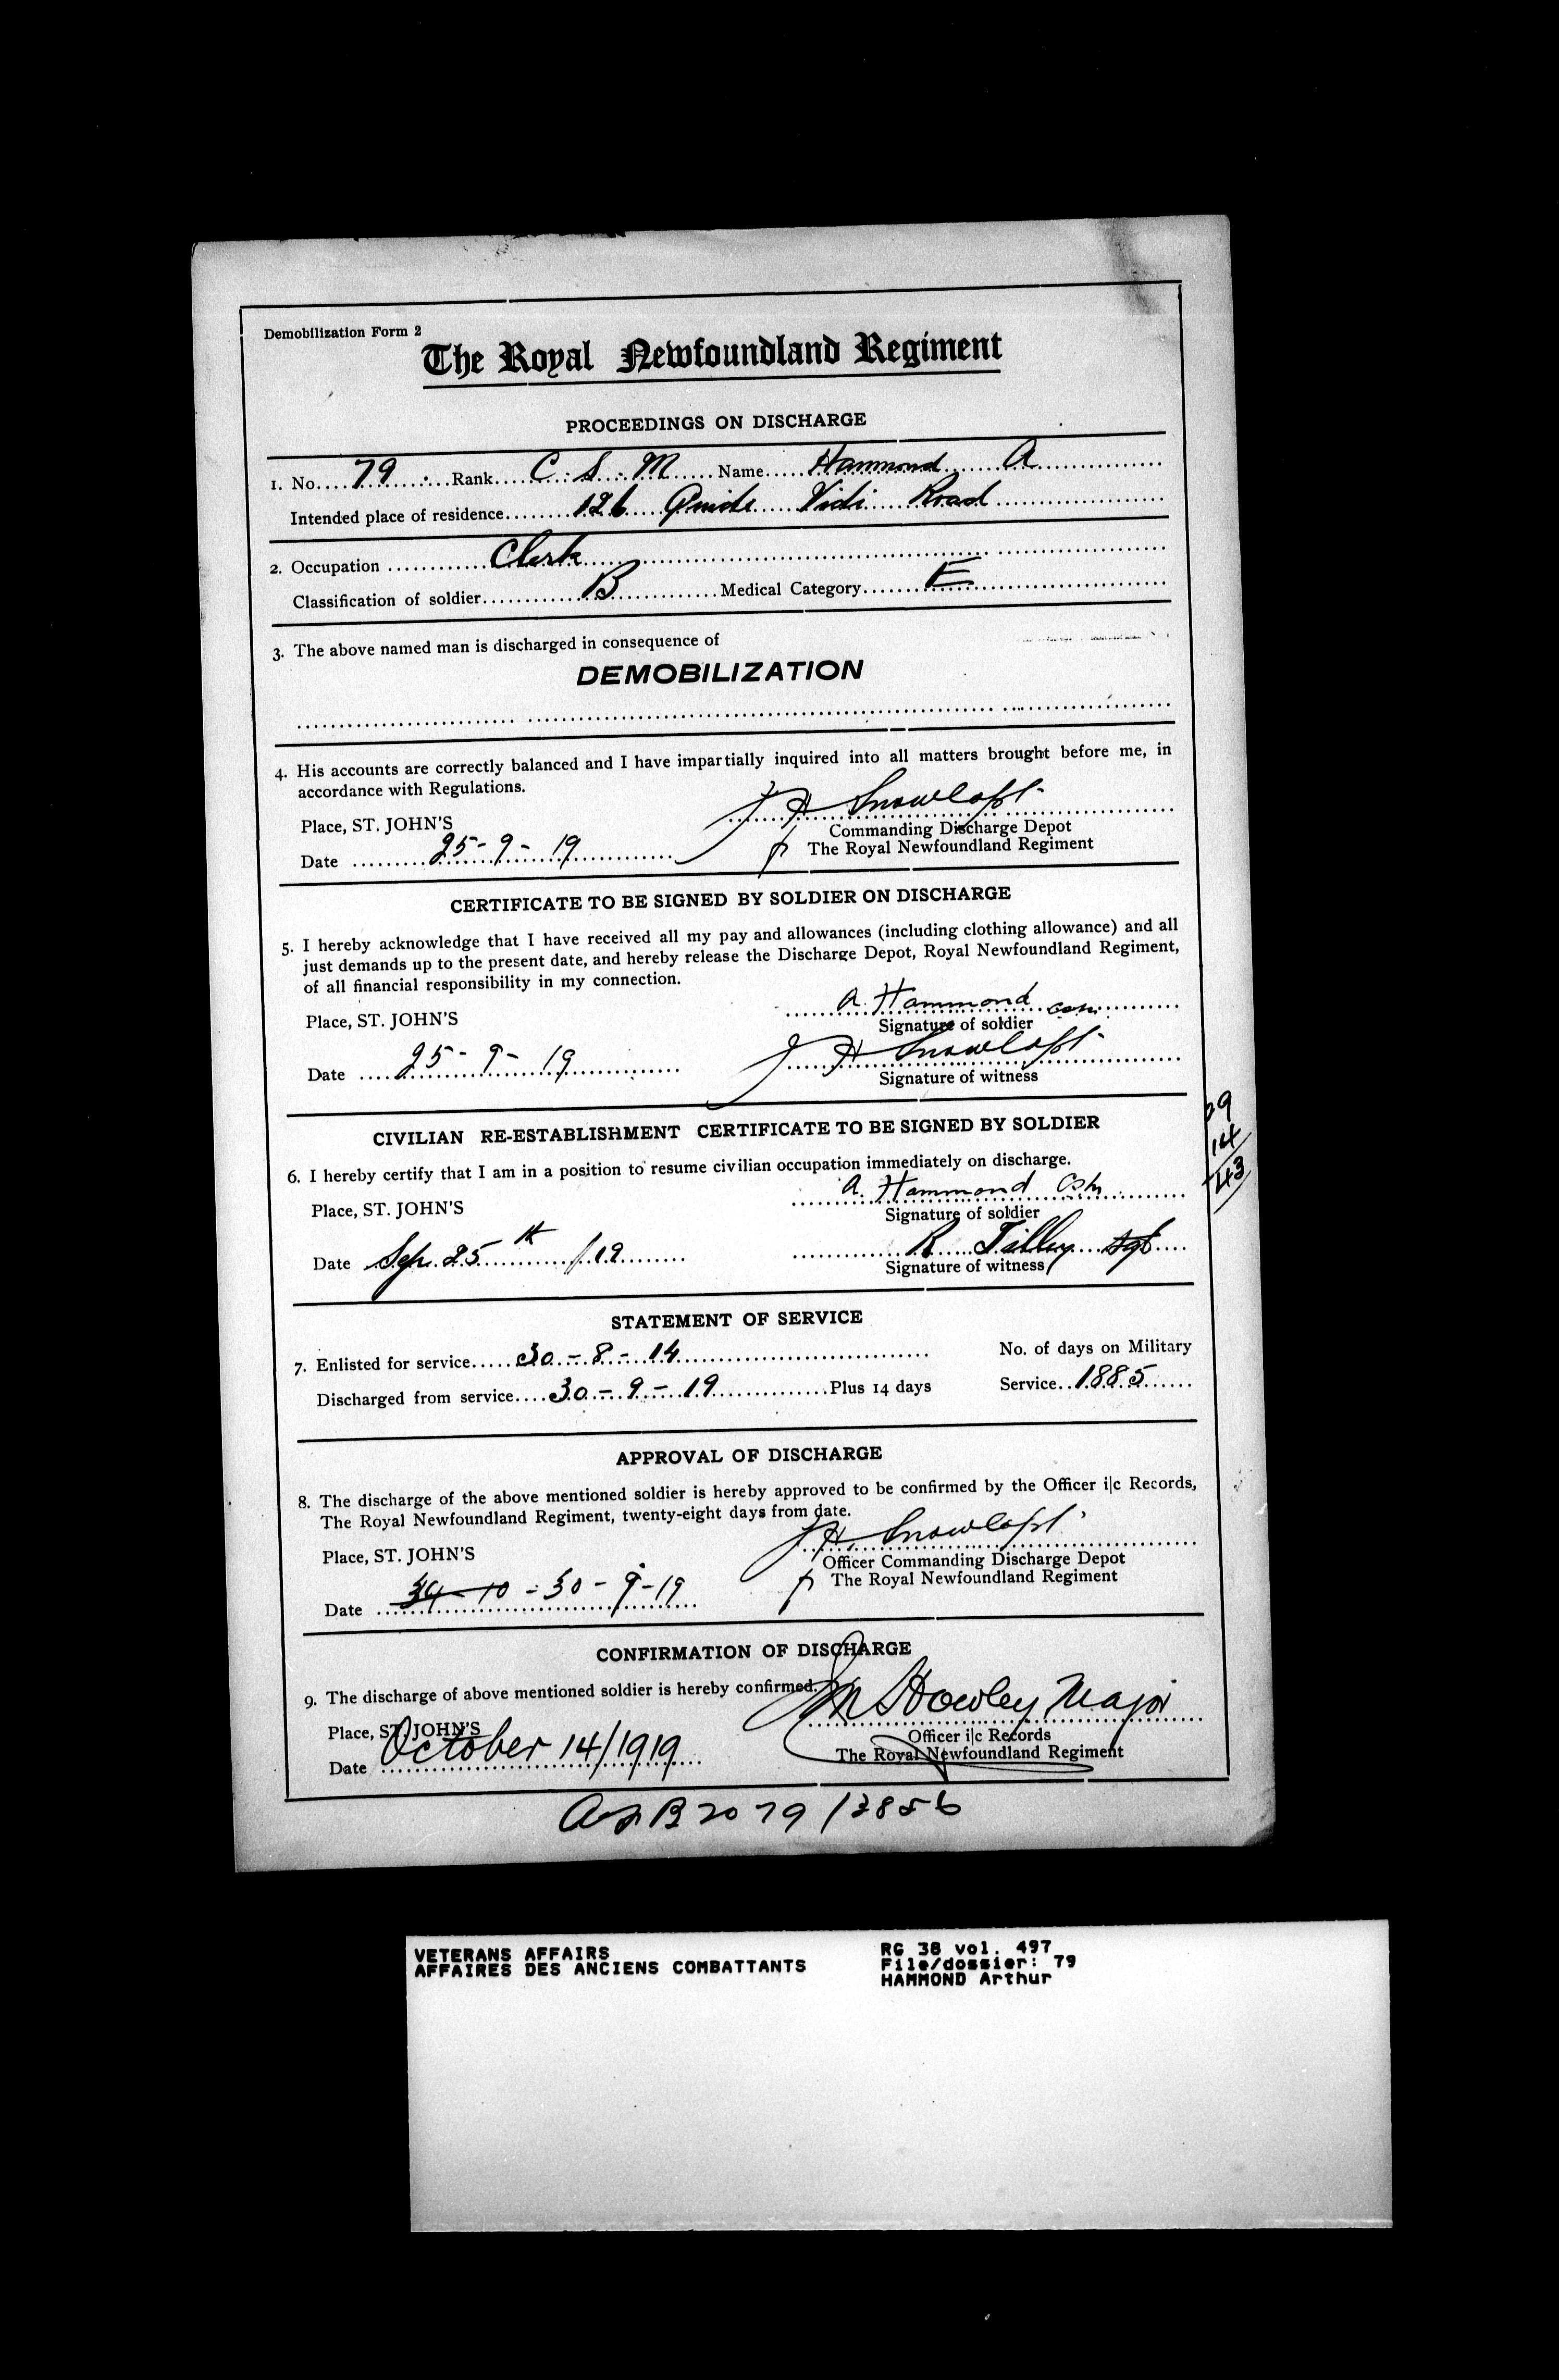 Demobilization Form 2
The Royal Newfoundland Regiment
PROCEEDINGS ON DISCHARGE
1. No. 79 Rank C.S.M Name Hammond A
Intended place of residence 126 Quide Vidi Road
2. Occupation Clerk
Classification of soldier B Medical Category E
3. The above named man is discharged in consequence of
DEMOBILIZATION
4. His accounts are correctly balanced and I have impartially inquired into all matters brought before me, in
accordance with Regulations.
Place, ST. JOHN'S
Commanding Discharge Depot
Date 25-9-19 The Royal Newfoundland Regiment
CERTIFICATE TO BE SIGNED BY SOLDIER ON DISCHARGE
5. I hereby acknowledge that I have received all my pay and allowances (including clothing allowance) and all
just demands up to the present date, and hereby release the Discharge Depot, Royal Newfoundland Regiment,
of all financial responsibility in my connection.
A. Hammond
Place, ST. JOHN'S Signature of soldier
Date 25-9-19
Signature of witness
29
14
43
CIVILIAN RE-ESTABLISHMENT CERTIFICATE TO BE SIGNED BY SOLDIER
6. I hereby certify that I am in a position to resume civilian occupation immediately on discharge.
A. Hammond
Place, ST. JOHN'S Signature of soldier
R Tilley Sgt
Date Sep. 25th /19 Signature of witness
STATEMENT OF SERVICE
7. Enlisted for service 30-8-14 No. of days on Military
Discharged from service 30-9-19 Plus 14 days Service 1885
APPROVAL OF DISCHARGE
8. The discharge of the above mentioned soldier is hereby approved to be confirmed by the Officer i|c Records,
The Royal Newfoundland Regiment, twenty-eight days from date.
Place, ST. JOHN'S
Officer Commanding Discharge Depot
The Royal Newfoundland Regiment
Date 30-9-19
CONFIRMATION OF DISCHARGE
9. The discharge of above mentioned soldier is hereby confirmed.
M Howley Major
Place, ST. JOHN'S Officer i|c Records
Date October 14/1919 The Royal Newfoundland Regiment
2079/3856
VETERANS AFFAIRS
AFFAIRES DES ANCIENS COMBATTANTS
RG 38 vol. 497
File/dossier: 79
HAMMOND Arthur